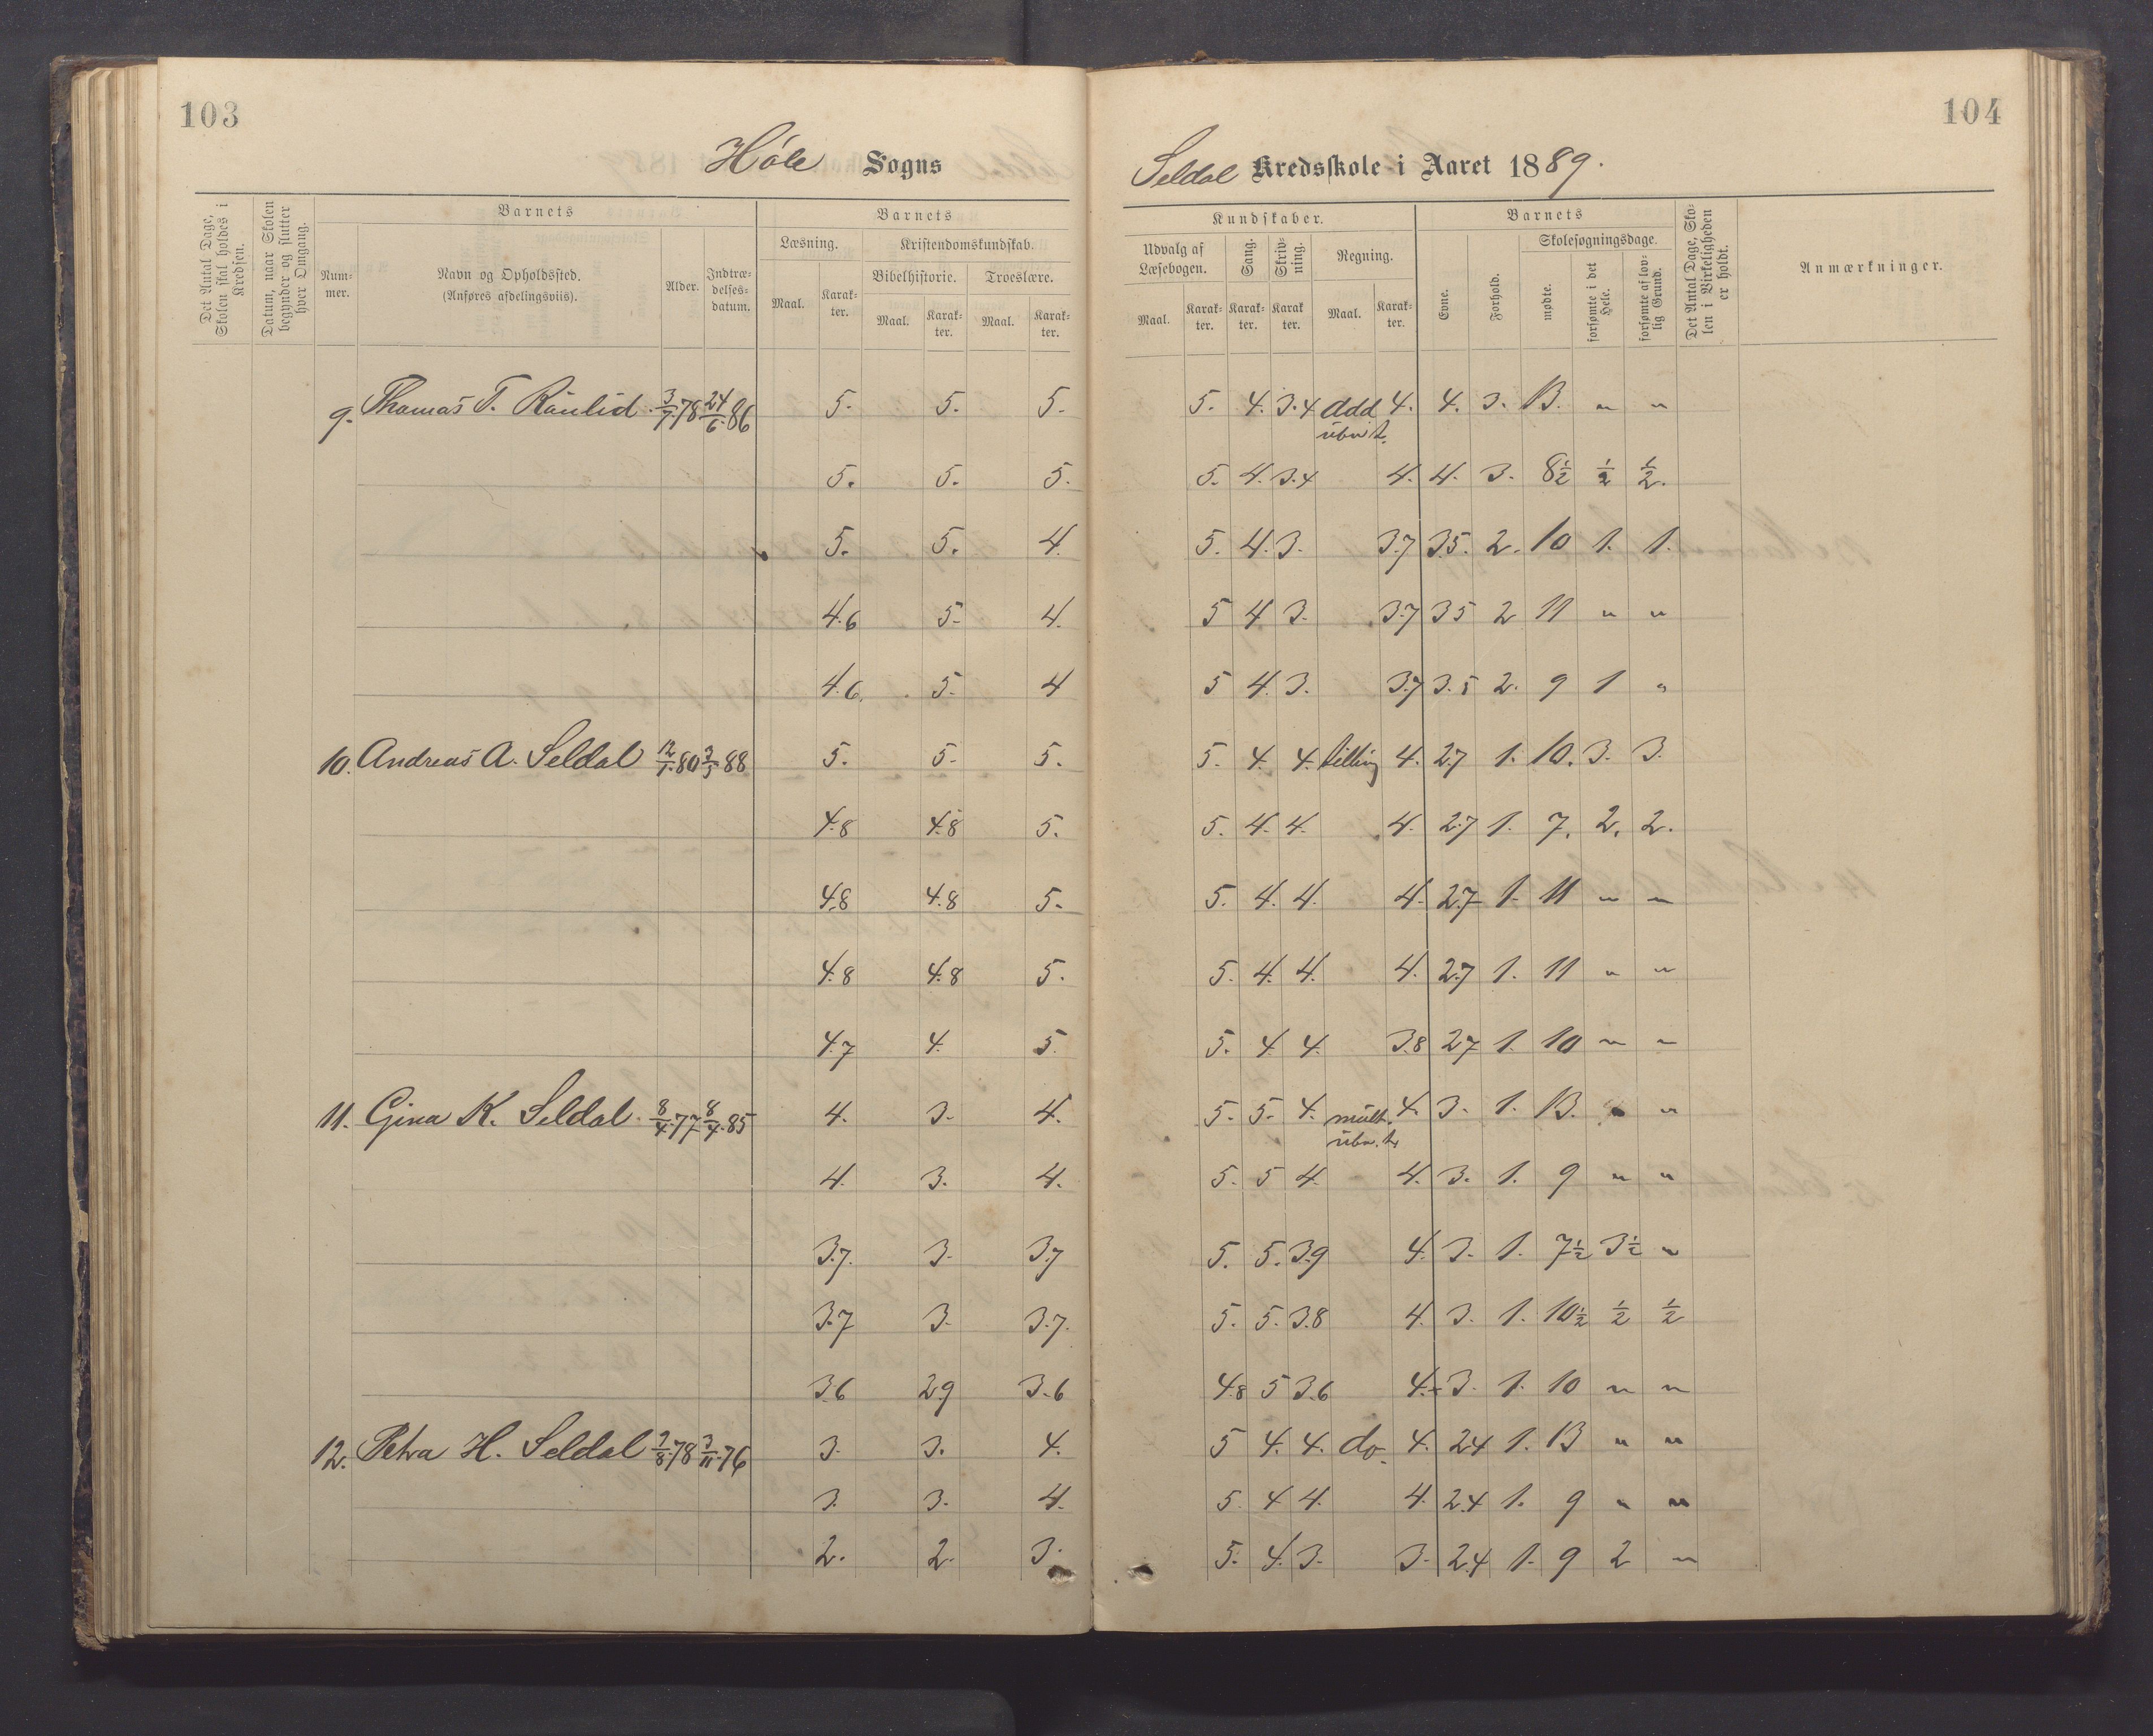 103
104
Høle Sogns
Seldal Kredsskole i Aaret 1889.
Det Antal Dage, Skolen skal holdes i Kredsen.
Datum, naar Skolen begynder og slutter hver Omgang.
Barnets
Num-
mer.
Navn og Opholdssted.
(Anføres afdelingsviis).
Alder.
Indtræ-
delses-
datum.
Barnets
Læsning.
Maal. Karak-
ter.
Kristendomskundskab.
Bibelhistorie. Troeslære.
Maal. Karak-
ter. Maal. Karak-
ter.
Kundskaber.
Udvalg af
Læsebogen.
Maal. Karak-
ter.
Sang.
Karak-
ter.
Skriv-
ning.
Karak
ter.
Regning.
Maal. Karak-
ter.
Barnets
Evne.
Forhold.
Skolesøgningsdage.
mødte.
forsømte i det Hele.
forsømte af lov-
lig Grund.
Det Antal Dage, Sko-
len i Virkeligheden
er holdt.
Anmærkninger.
9. Thomas T. 3/7.78 24/6.86 5. 5. 5. 5. 4. 3.4 add 4. 4. 3. 13. " "
ubn t.
5. 5. 5. 5. 4. 3.4 4. 4. 3. 8½ ½ ½.
5. 5. 4. 5. 4. 3. 3.7 3.5. 2. 10 1. 1.
4.6 5. 4. 5 4 3. 3.7 3.5 2 11 " "
4.6. 5. 4 5 4. 3. 3.7 3.5 2. 9 1 "
10. Andreas A. Seldal 12/1.80 3/5 88 5. 5. 5. 5. 4. 4. tilling 4. 2.7 1. 10. 3. 3.
4.8 4.8 5. 5. 4. 4. 4. 2.7 1. 7. 2. 2.
4.8 4.8 5. 5. 4. 4. 4. 2.7 1. 11 " "
4.8 4.8 5. 5. 4. 4. 4. 2.7 1. 11 " "
4.7 4. 5. 5. 4. 4. 3.8 2.7 1. 10 " "
11. Gina K. Seldal. 8/4.77 8/4.85 4. 3. 4. 5. 5. 4. mult. 4. 3. 1. 13. " "
ubn. t.
4. 3. 4. 5. 5 4. 4. 3. 1. 9 " "
3.7. 3. 3.7 5. 5. 3.9 4. 3. 1. 7½ 3½ "
3.7 3. 3.7. 5. 5. 3.8 4. 3. 1. 10½ ½ ½
3.6 2.9 3.6 4.8 5 3.6 4. 3. 1. 10 " "
12. Petra H. Seldal 3/8.78 3/11.76 3. 3. 4. 5 4. 4. do. 4. 2.4 1. 13 " "
3. 3. 4. 5. 4 4. 4. 2.4 1. 9 " "
2. 2. 3. 5. 4. 3. 3. 2.4 1. 9 2 "